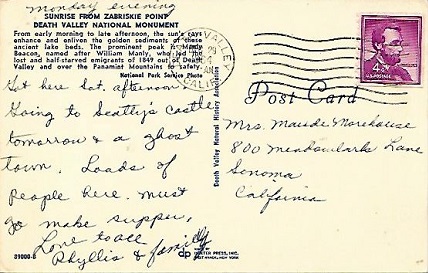 monday evening
SUNRISE FROM ZABRISKIE POINT
DEATH VALLEY NATIONAL MONUMENT
From early morning to late afternoon, the sun's rays
enhance and enliven the golden sediments of these
ancient lake beds. The prominent peak is Manly
Beacon, named after William Manly, who led the
lost and half-starved emigrants of 1849 out of Death
Valley and over the Panamint Mountains to safety.
National Park Service Photo
Got here Sat. afternoon
Going to Scotty's Castle
tomorrow & a ghost
town. Loads of
people here. Must
go make supper,
Love to all
Phyllis & family
39000-B
Death Valley Natural History Association
dp
DEXTER PRESS, INC.
WEST NYACK, NEW YORK
VALLEY
CALIF
4¢
U.S. POSTAGE
Post Card
Mrs. Maude Morehouse
800 Meadowlark Lane
Sonoma
California